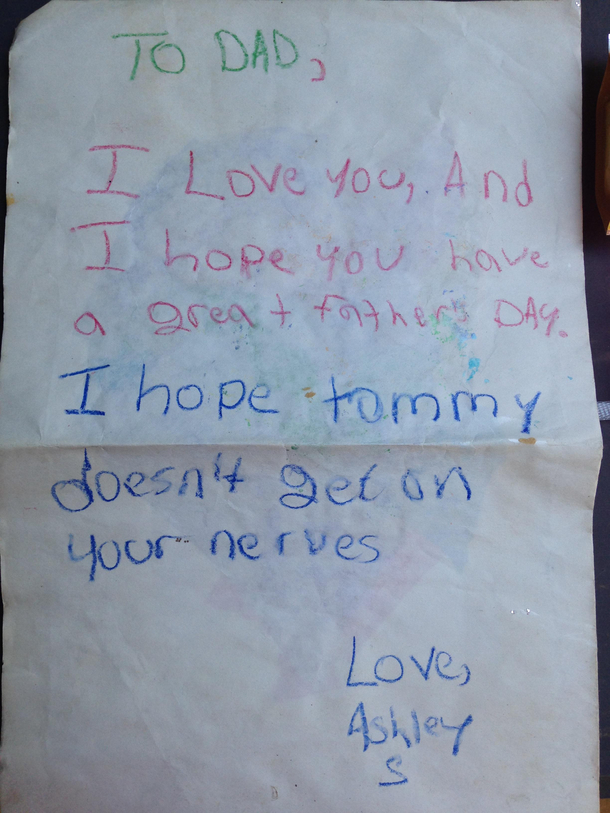 TO DAD,
I Love you, And
I hope you have
a great fathers DAY.
I hope tommy
doesn't get on
your nerves
Love,
Ashley
S